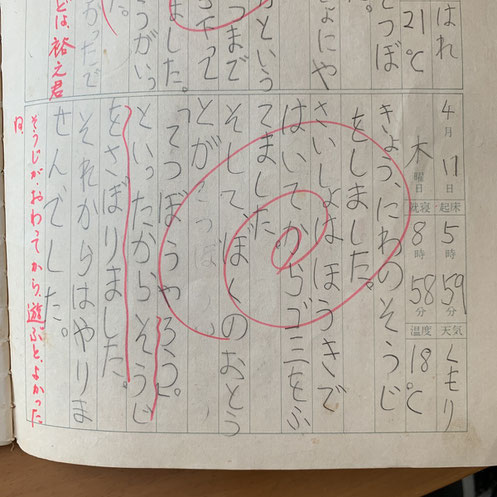 はれ
21℃
てつぼ
よにや
という
つまで
ました。
うがいっ
た。
かったで
どは、裕之君
4月11日
木曜日
起床 5時59分
就寝 8時58分
天気 くもり
温度 18℃
きょう、にわのそうじ
をしました。
さいしょはほうきで
はいてからゴミをふ
てました。
そして、ぼくのおとう
とが
てつぼうやろう。
といったからそうじ
をさぼりました。
それからはやりま
せんでした。
そうじが、おわってから、遊ぶと、よかった
ね